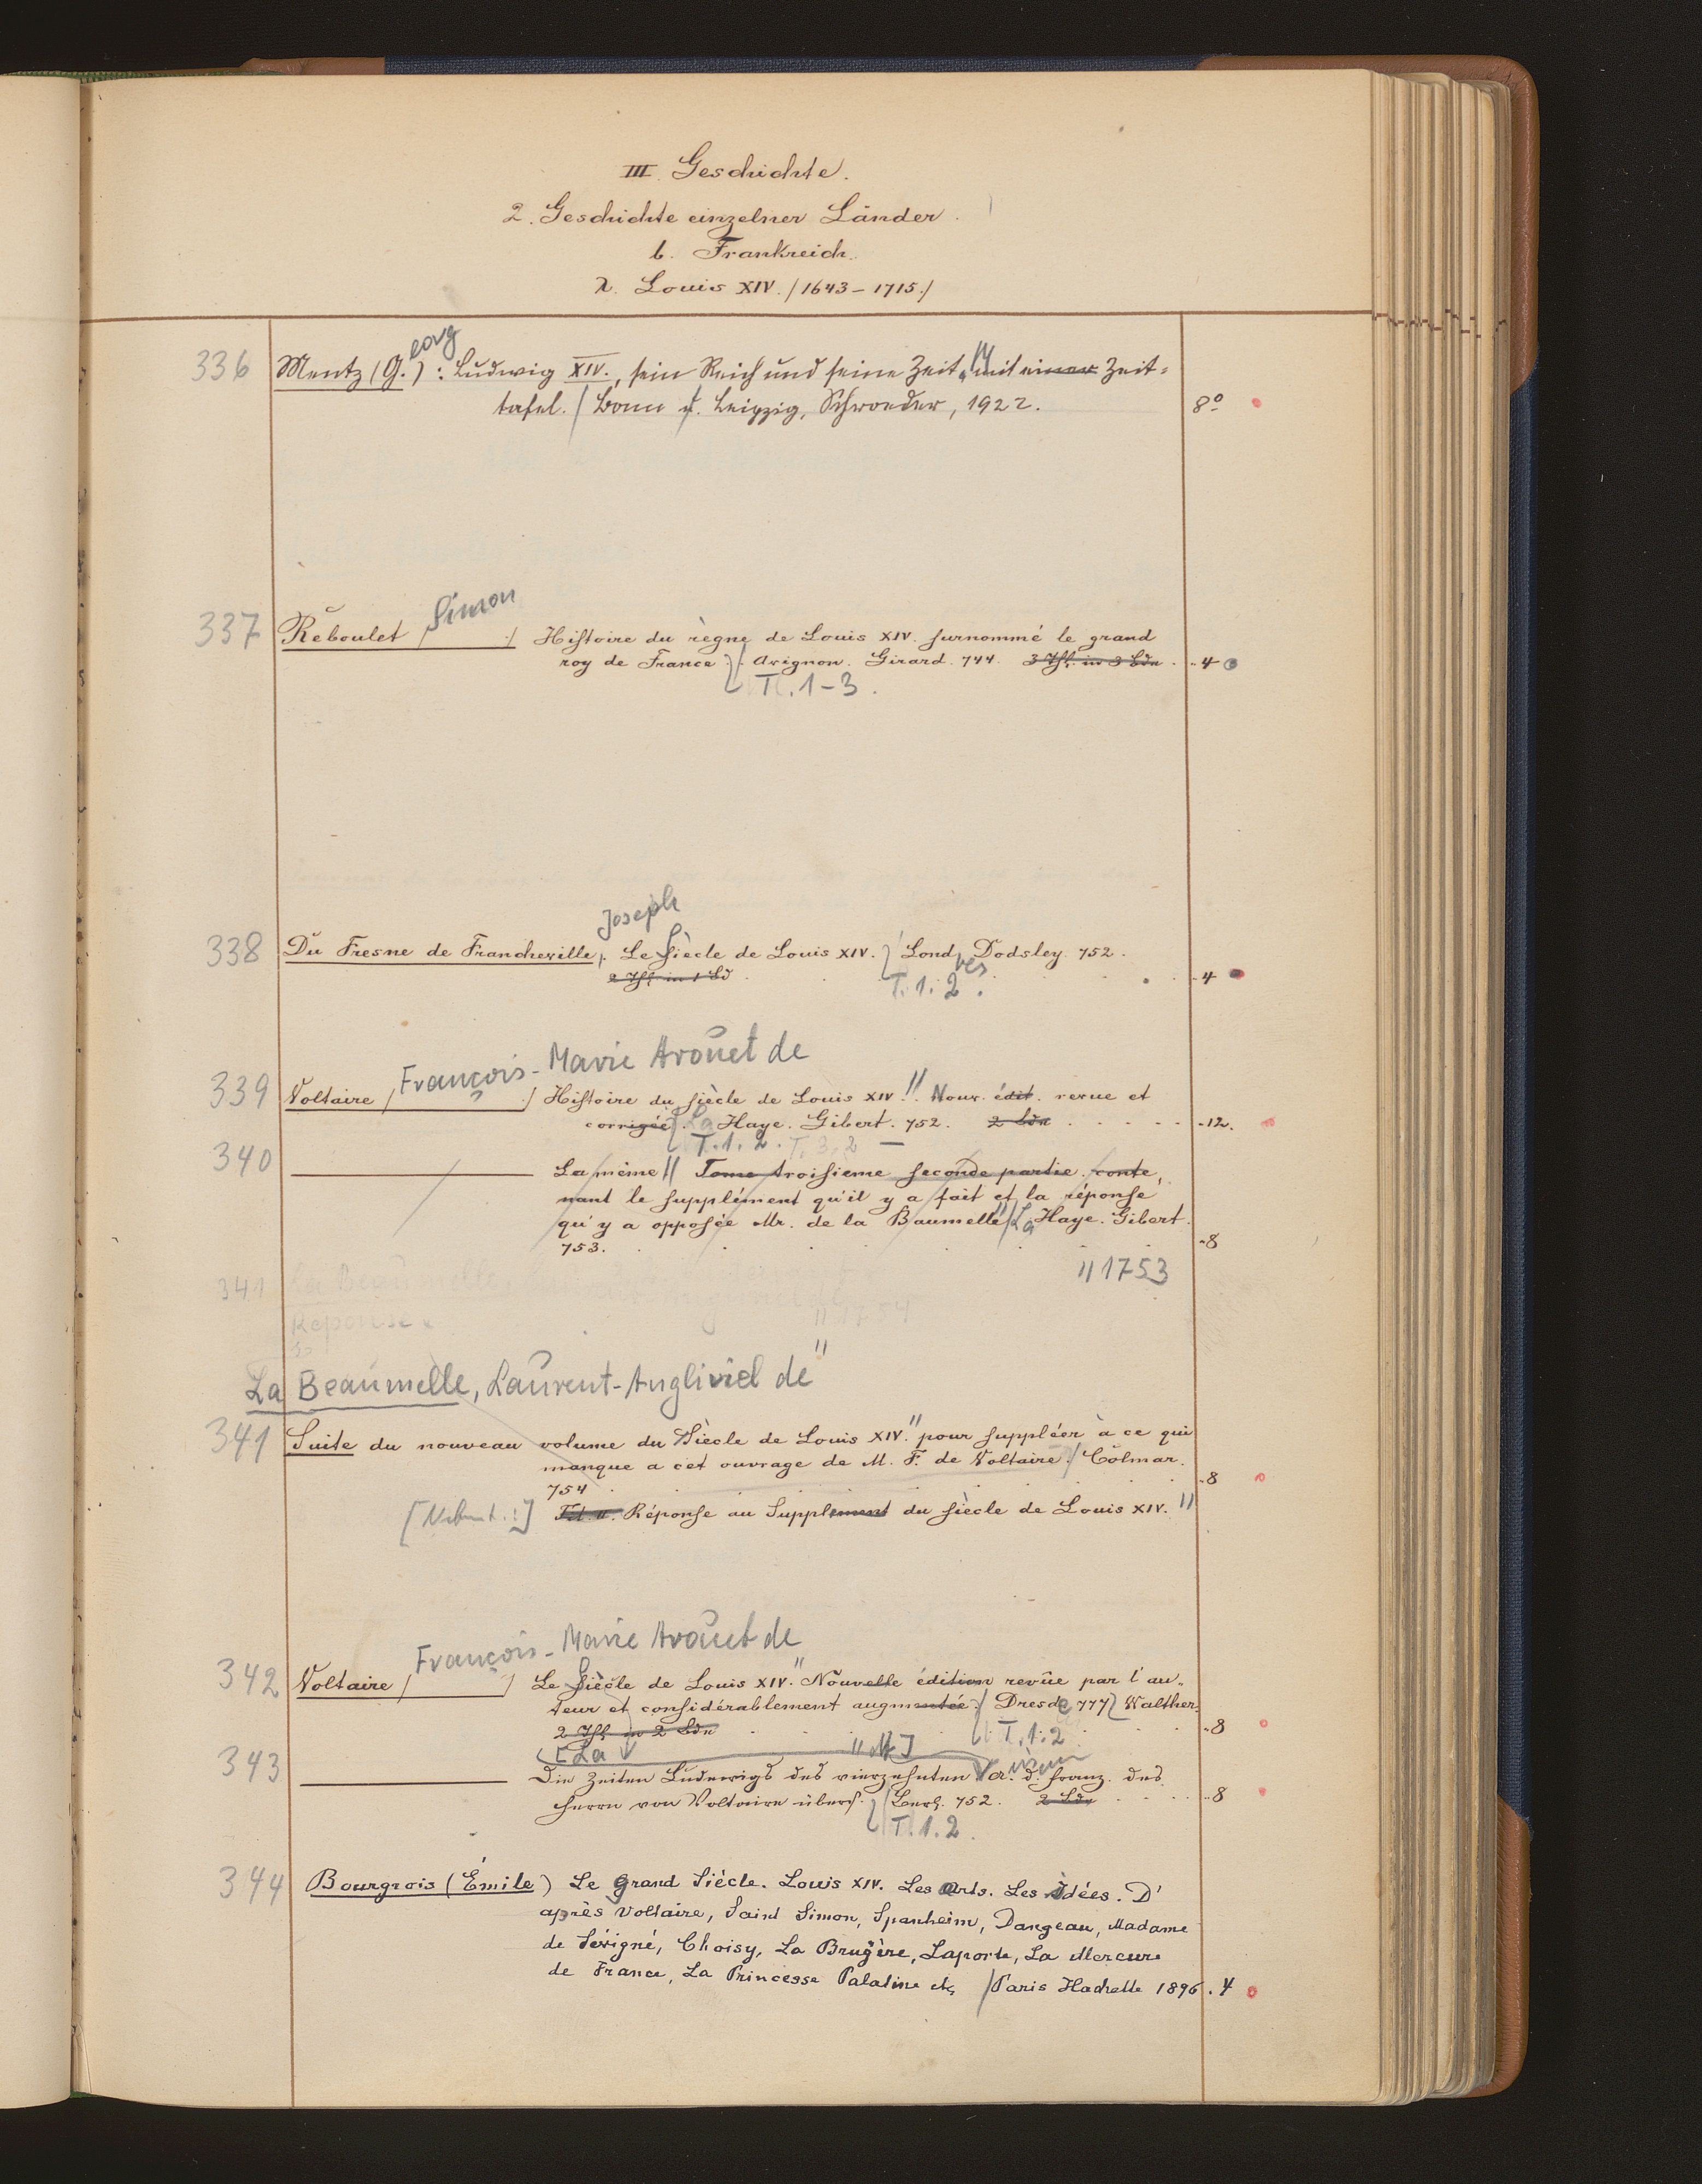 III. Geschichte.
2. Geschichte einzelner Länder.
b. Frankreich.
λ. Louis XIV. /1643-1715./
eorg
336 Mentz (G.): Ludwig XIV., sein Reich und seine Zeit, Mit einer Zeit=
tafel. / Bonn u. Leipzig, Schroeder, 1922. 8º
Simon
337 Reboulet / / Histoire du règne de Louis XIV. surnommé le grand
roy de France. / Avignon. Girard. 744. 3 Thl. in 3 Bdn. 4
T. 1-3.
Joseph
338 Du Fresne de Francheville, Le siècle de Louis XIV. / Lond. Dodsley 752.
res
2 Thl. in 1 Bd. T. 1. 2. 4
François-Marie Aroüet de
339 Voltaire / / Histoire du siècle de Louis XIV. // Nouv. édit. revue et
corrigée. La Haye. Gibert. 752. 2 Bdn. 12.
T. 1. 2. T. 3, 2 —
340 ——— La même // Tome troisieme seconde partie. conte,
nant le supplément qu'il y a fait et la réponse
qu'y a opposée Mr. de la Baumelle // La Haye. Gibert.
753. 8
// 1753
341 La Beaumelle
Reponse
// 1754
La Beaumelle, Laurent-Angliviel de //
341 Suite du nouveau volume du Siècle de Louis XIV. // pour suppléer à ce qui
manque a cet ouvrage de M. F. de Voltaire. / Colmar.
754 8
[Nebent.:] Tit. Réponse au Supplement du siècle de Louis XIV. //
François-Marie Aroüet de
342 Voltaire / / Le siècle de Louis XIV. // Nouvelle édition revûe par l'au,,
teur et considérablement augmentée. / Dresde 777 Walther.
2 Thl. in 2 Bdn T. 1. 2 8
[Le //]
343 ——— Die Zeiten Ludewigs des vierzehnten a. d. Franz. des
Herrn von Voltaire übers. / Berl. 752. 2 Bdn 8
T. 1. 2.
344 Bourgeois (Émile) Le grand Siècle. Louis XIV. Les Arts. Les Idées. D'
après Voltaire, Saint Simon, Spanheim, Dangeau, Madame
de Sévigné, Choisy, La Bruyère, Laporte, La Mercure
de France, La Princesse Palatine etc / Paris Hachette 1896. 4